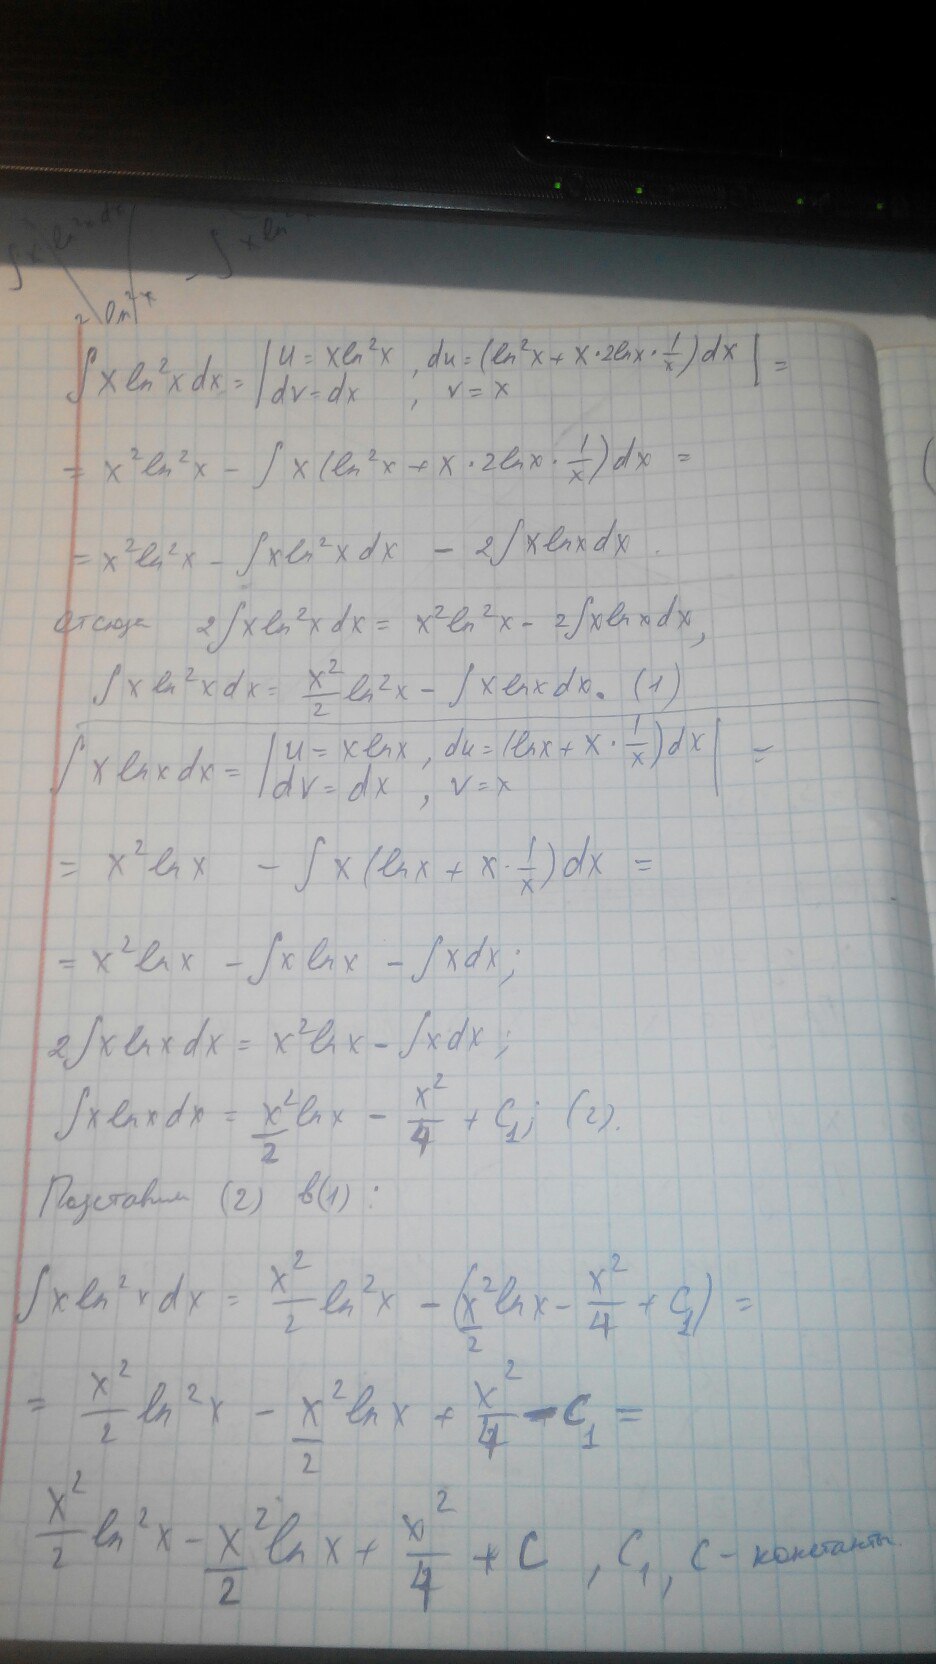 ∫x ln²x dx
- ∫x ln²x
2 ln²x
∫x ln²x dx = | u = x ln²x , du = (ln²x + x · 2lnx · 1/x) dx | =
dv = dx , v = x
= x² ln²x - ∫ x (ln²x + x · 2lnx · 1/x) dx =
= x² ln²x - ∫x ln²x dx - 2∫x lnx dx .
Отсюда 2∫x ln²x dx = x² ln²x - 2∫x lnx dx,
∫x ln²x dx = x²/2 ln²x - ∫x lnx dx. (1)
∫x lnx dx = | u = x lnx , du = (lnx + x · 1/x) dx | =
dv = dx , v = x
= x² lnx - ∫ x (lnx + x · 1/x) dx =
= x² lnx - ∫x lnx - ∫x dx ;
2∫x lnx dx = x² lnx - ∫x dx ;
∫x lnx dx = x²/2 lnx - x²/4 + C₁; (2).
Подставим (2) в (1) :
∫x ln²x dx = x²/2 ln²x - (x²/2 lnx - x²/4 + C₁) =
= x²/2 ln²x - x²/2 lnx + x²/4 - C₁ =
x²/2 ln²x - x²/2 lnx + x²/4 + C , C₁, C - константы.